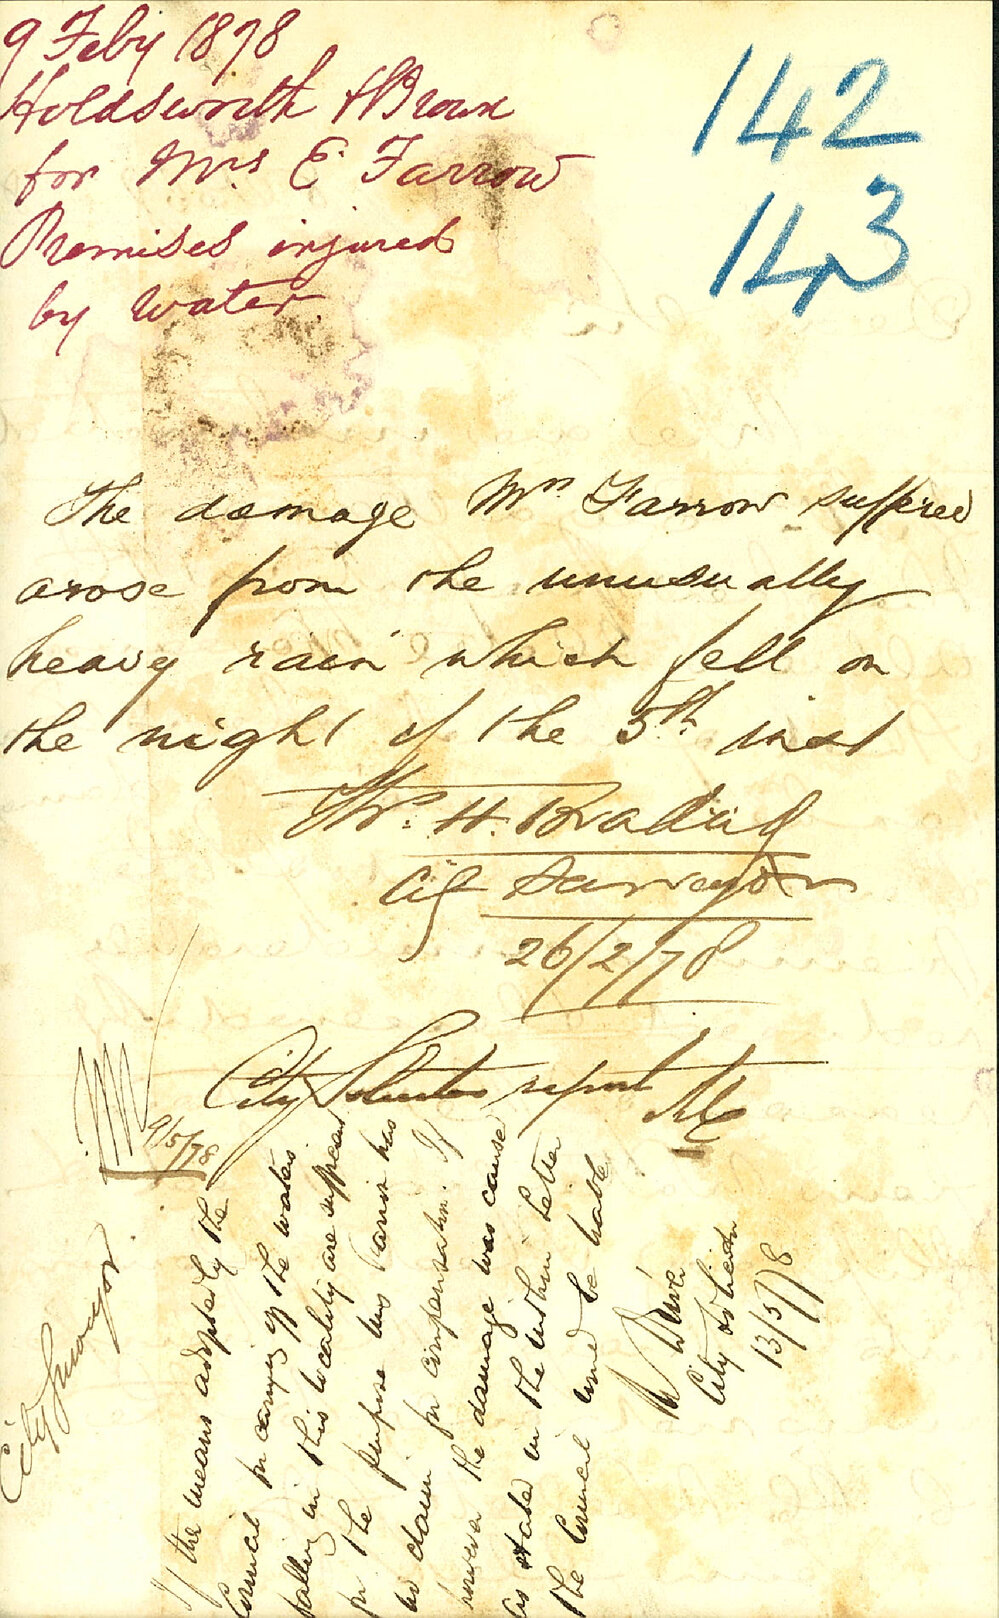 9 Feby 1878
Holdsworth & Brown
for Mrs E Farrow
Premises injured
by water
142
143
The damage Mrs Farrow suffered
arose from the unusually
heavy rain which fell on
the night of the 5th inst
W. H.
City Surveyor
26/2/78
City Solicitor report
9/5/78
City Surveyor
If the means adopted by the
Council for carrying off the waters
falling in this locality are sufficient
for the purpose Mrs Farrow has
no claim for compensation. If
however the damage was cause
as stated in the within letter
the Council will be liable
City Solicitor
13/5/78